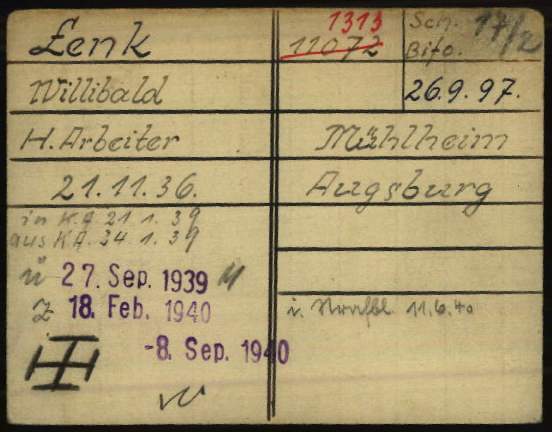 Lenk
1313
11072
Sch. 17/2
Bifo.
Willibald
26.9.97.
H. Arbeiter
Mühlheim
21.11.36.
Augsburg
in K.A. 21 1. 39
aus K.A. 24 1. 39
ü 27. Sep. 1939 M
z 18. Feb. 1940
i. Strafbl. 11.6.40
-8. Sep. 1940